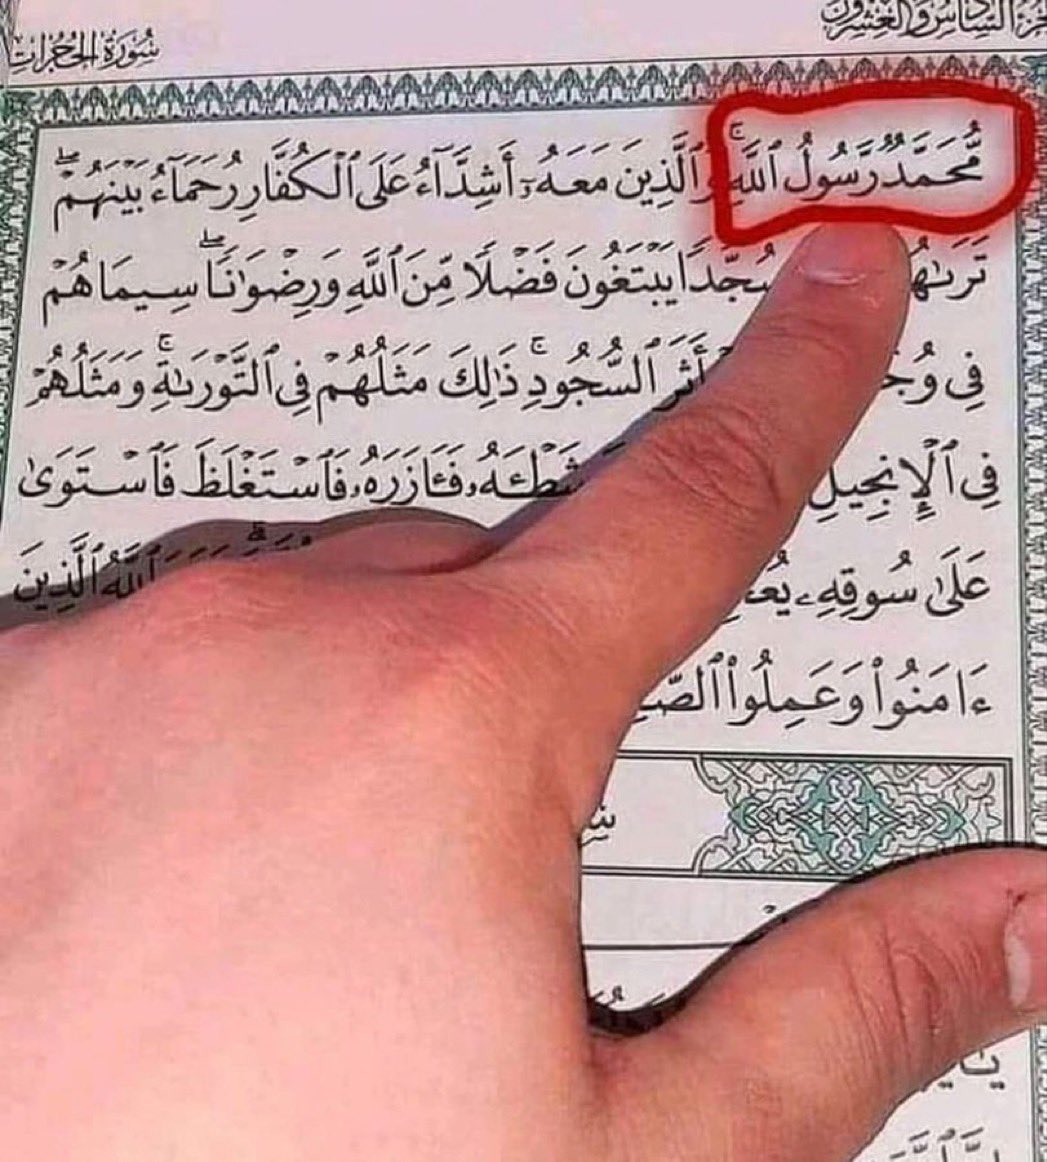 سُورَةُ الحُجُرَاتِ
الجُزءُ السَّادِسُ وَالعِشرُونَ
مُّحَمَّدٌ رَّسُولُ ٱللَّهِۚ وَٱلَّذِينَ مَعَهُۥٓ أَشِدَّآءُ عَلَى ٱلْكُفَّارِ رُحَمَآءُ بَيْنَهُمْۖ
تَرَىٰهُمْ سُجَّدًا يَبْتَغُونَ فَضْلًا مِّنَ ٱللَّهِ وَرِضْوَٰنًاۖ سِيمَاهُمْ
فِى أَثَرِ ٱلسُّجُودِۚ ذَٰلِكَ مَثَلُهُمْ فِى ٱلتَّوْرَىٰةِۚ وَمَثَلُهُمْ
فِى ٱلْإِنجِيلِ شَطْـَٔهُۥ فَـَٔازَرَهُۥ فَٱسْتَغْلَظَ فَٱسْتَوَىٰ
عَلَىٰ سُوقِهِۦ ٱللَّهُ ٱلَّذِينَ
ءَامَنُوا۟ وَعَمِلُوا۟